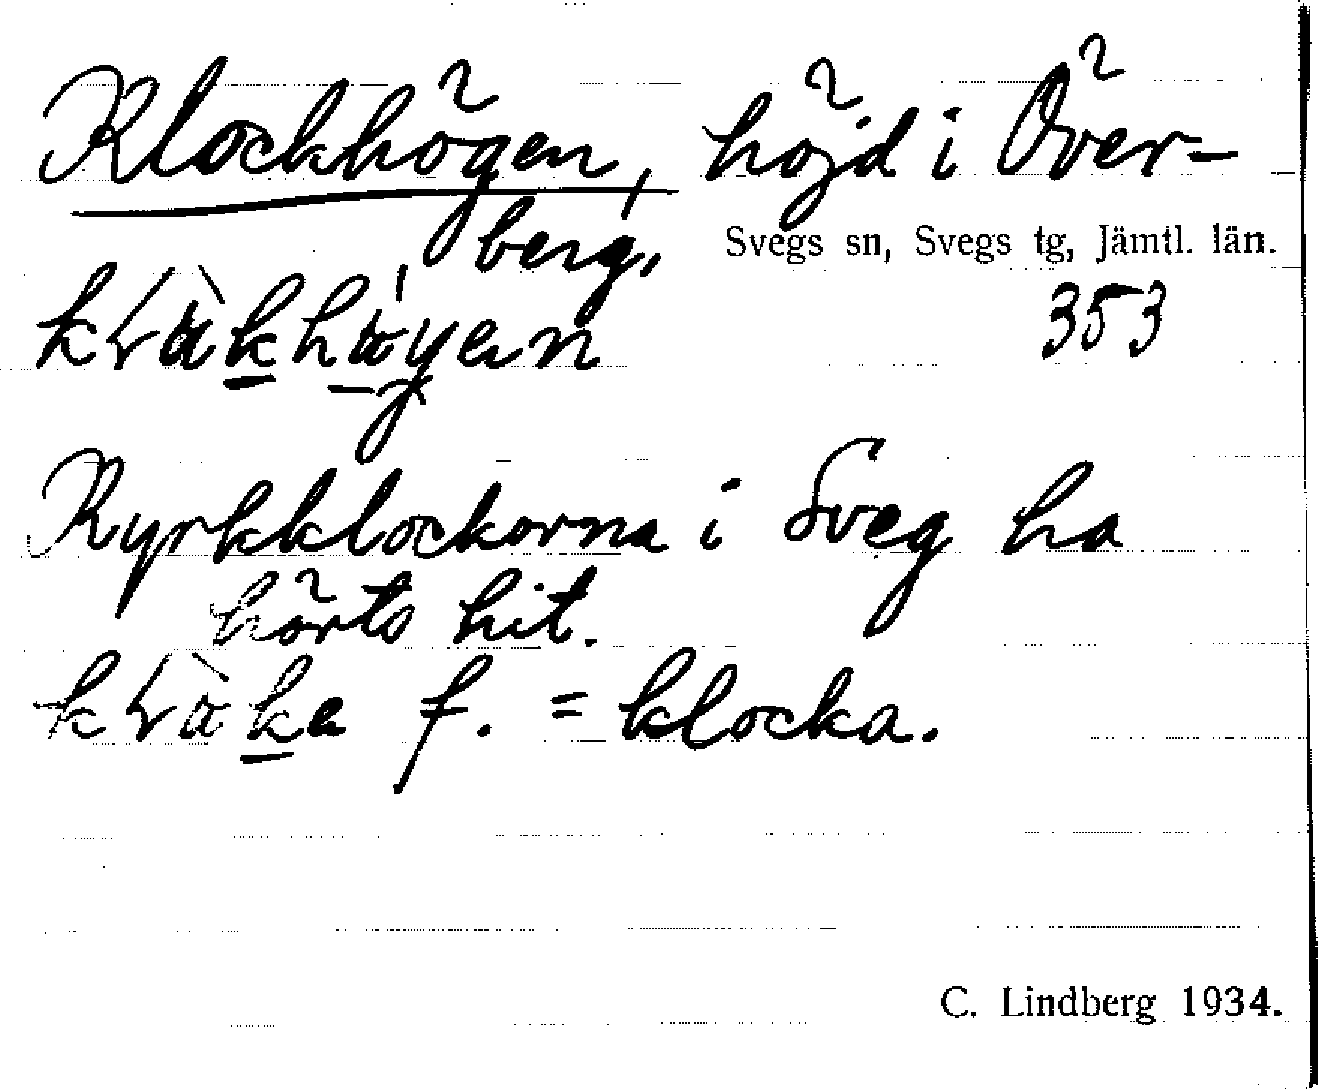 Klockhögen, höjd i Över-
berg, Svegs sn, Svegs tg, Jämtl. län.
353
Kyrkklockorna i Sveg ha
hörts hit.
f. = klocka.
C. Lindberg 1934.